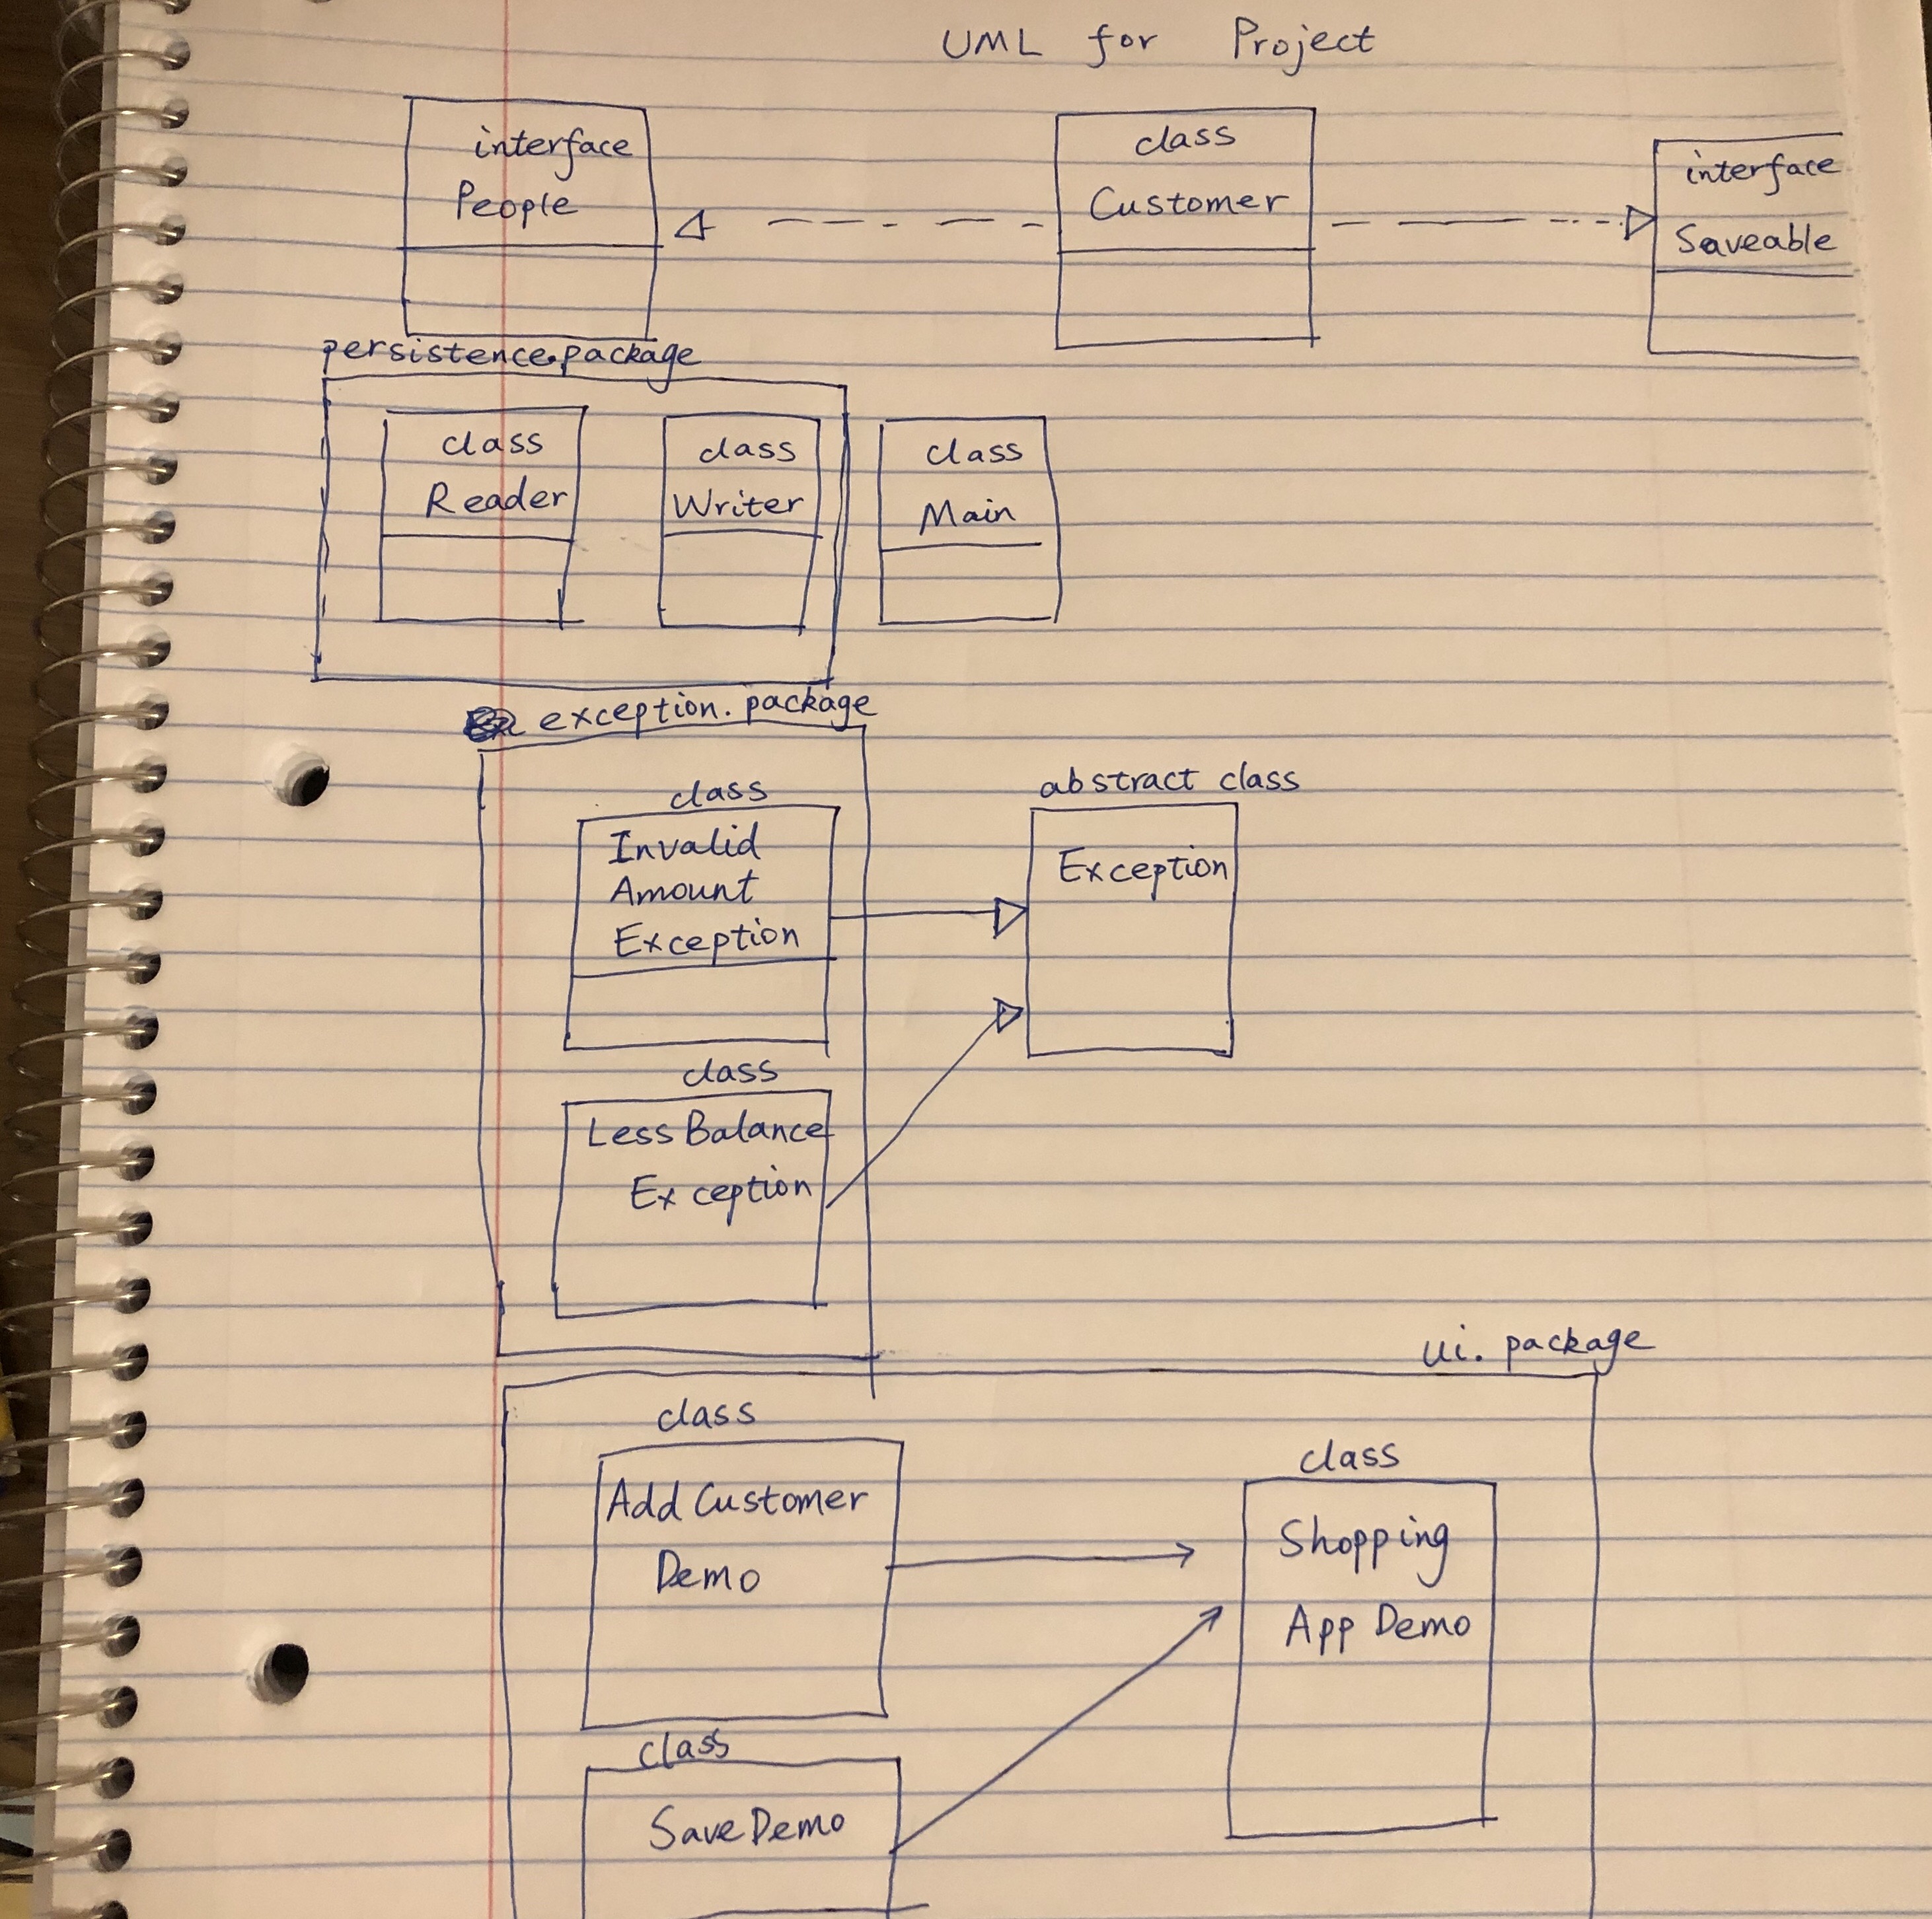 UML for Project
interface
People
class
Customer
interface
Saveable
persistence.package
class
Reader
class
Writer
class
Main
exception.package
class
Invalid
Amount
Exception
abstract class
Exception
class
Less Balance
Exception
ui.package
class
Add Customer
Demo
class
Shopping
App Demo
class
Save Demo